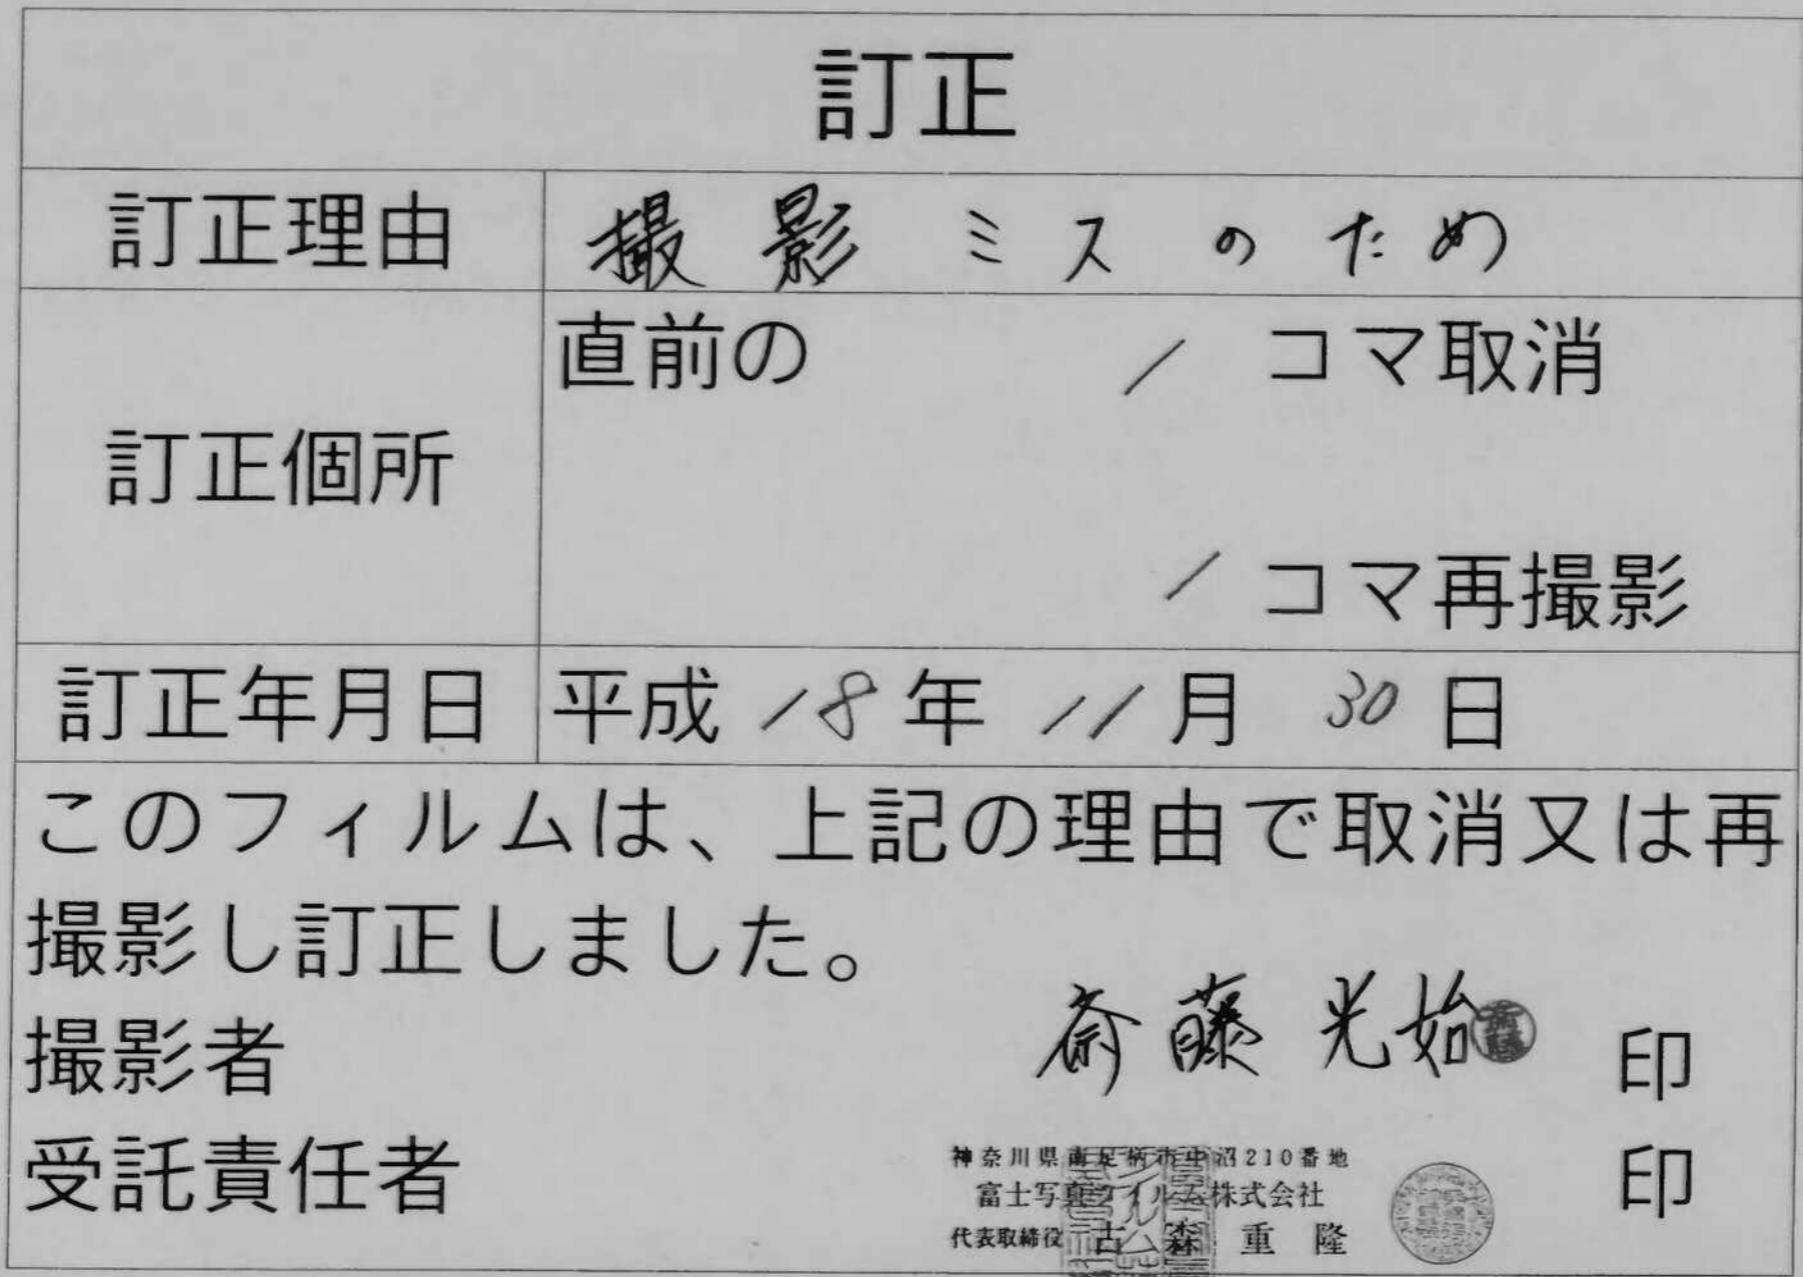 訂正
訂正理由 撮影ミスのため
訂正個所 直前の 1 コマ取消
1 コマ再撮影
訂正年月日 平成 18 年 11 月 30 日
このフィルムは、上記の理由で取消又は再
撮影し訂正しました。
撮影者 斎藤 光始 印
受託責任者 印
神奈川県南足柄市中沼210番地
富士写真フイルム株式会社
代表取締役 古森 重隆